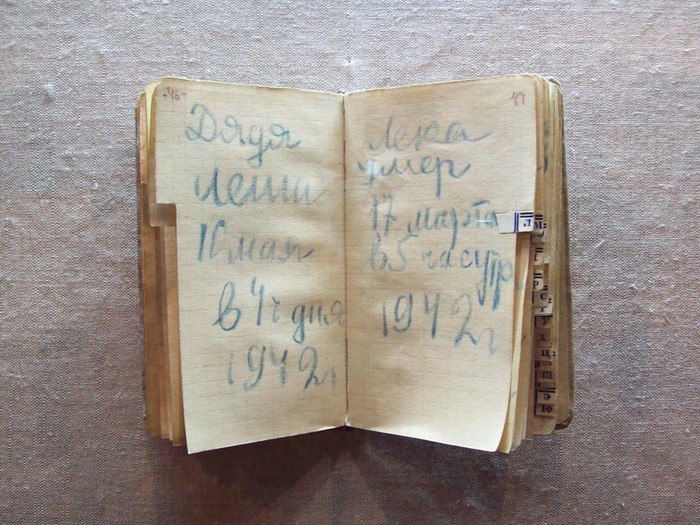 46
Дядя
Леша
10 мая
в 4 ч дня
1942 г
47
Лека
умер
17 марта
в 5 часутр
1942 г
Л М
Р
С
У
Х
Ц
Ш
Э
Ю